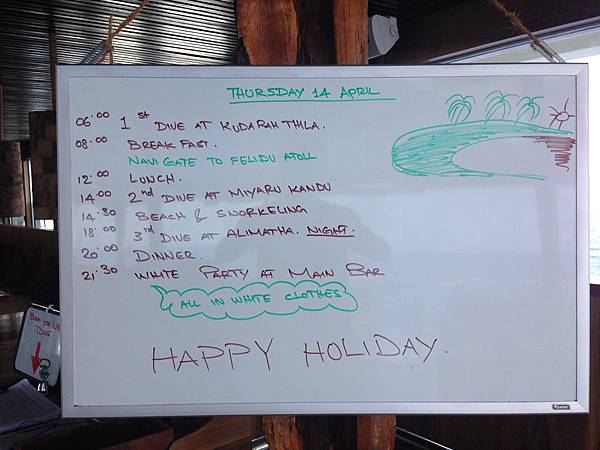 THURSDAY 14 APRIL
06:00 1st DIVE AT KUDARAH THILA.
08:00 BREAK FAST.
NAVIGATE TO FELIDU ATOLL
12:00 LUNCH.
14:00 2nd DIVE AT MIYARU KANDU
14:30 BEACH & SNORKELING
18:00 3rd DIVE AT ALIMATHA. NIGHT.
20:00 DINNER.
21:30 WHITE PARTY AT MAIN BAR
ALL IN WHITE CLOTHES
HAPPY HOLIDAY.